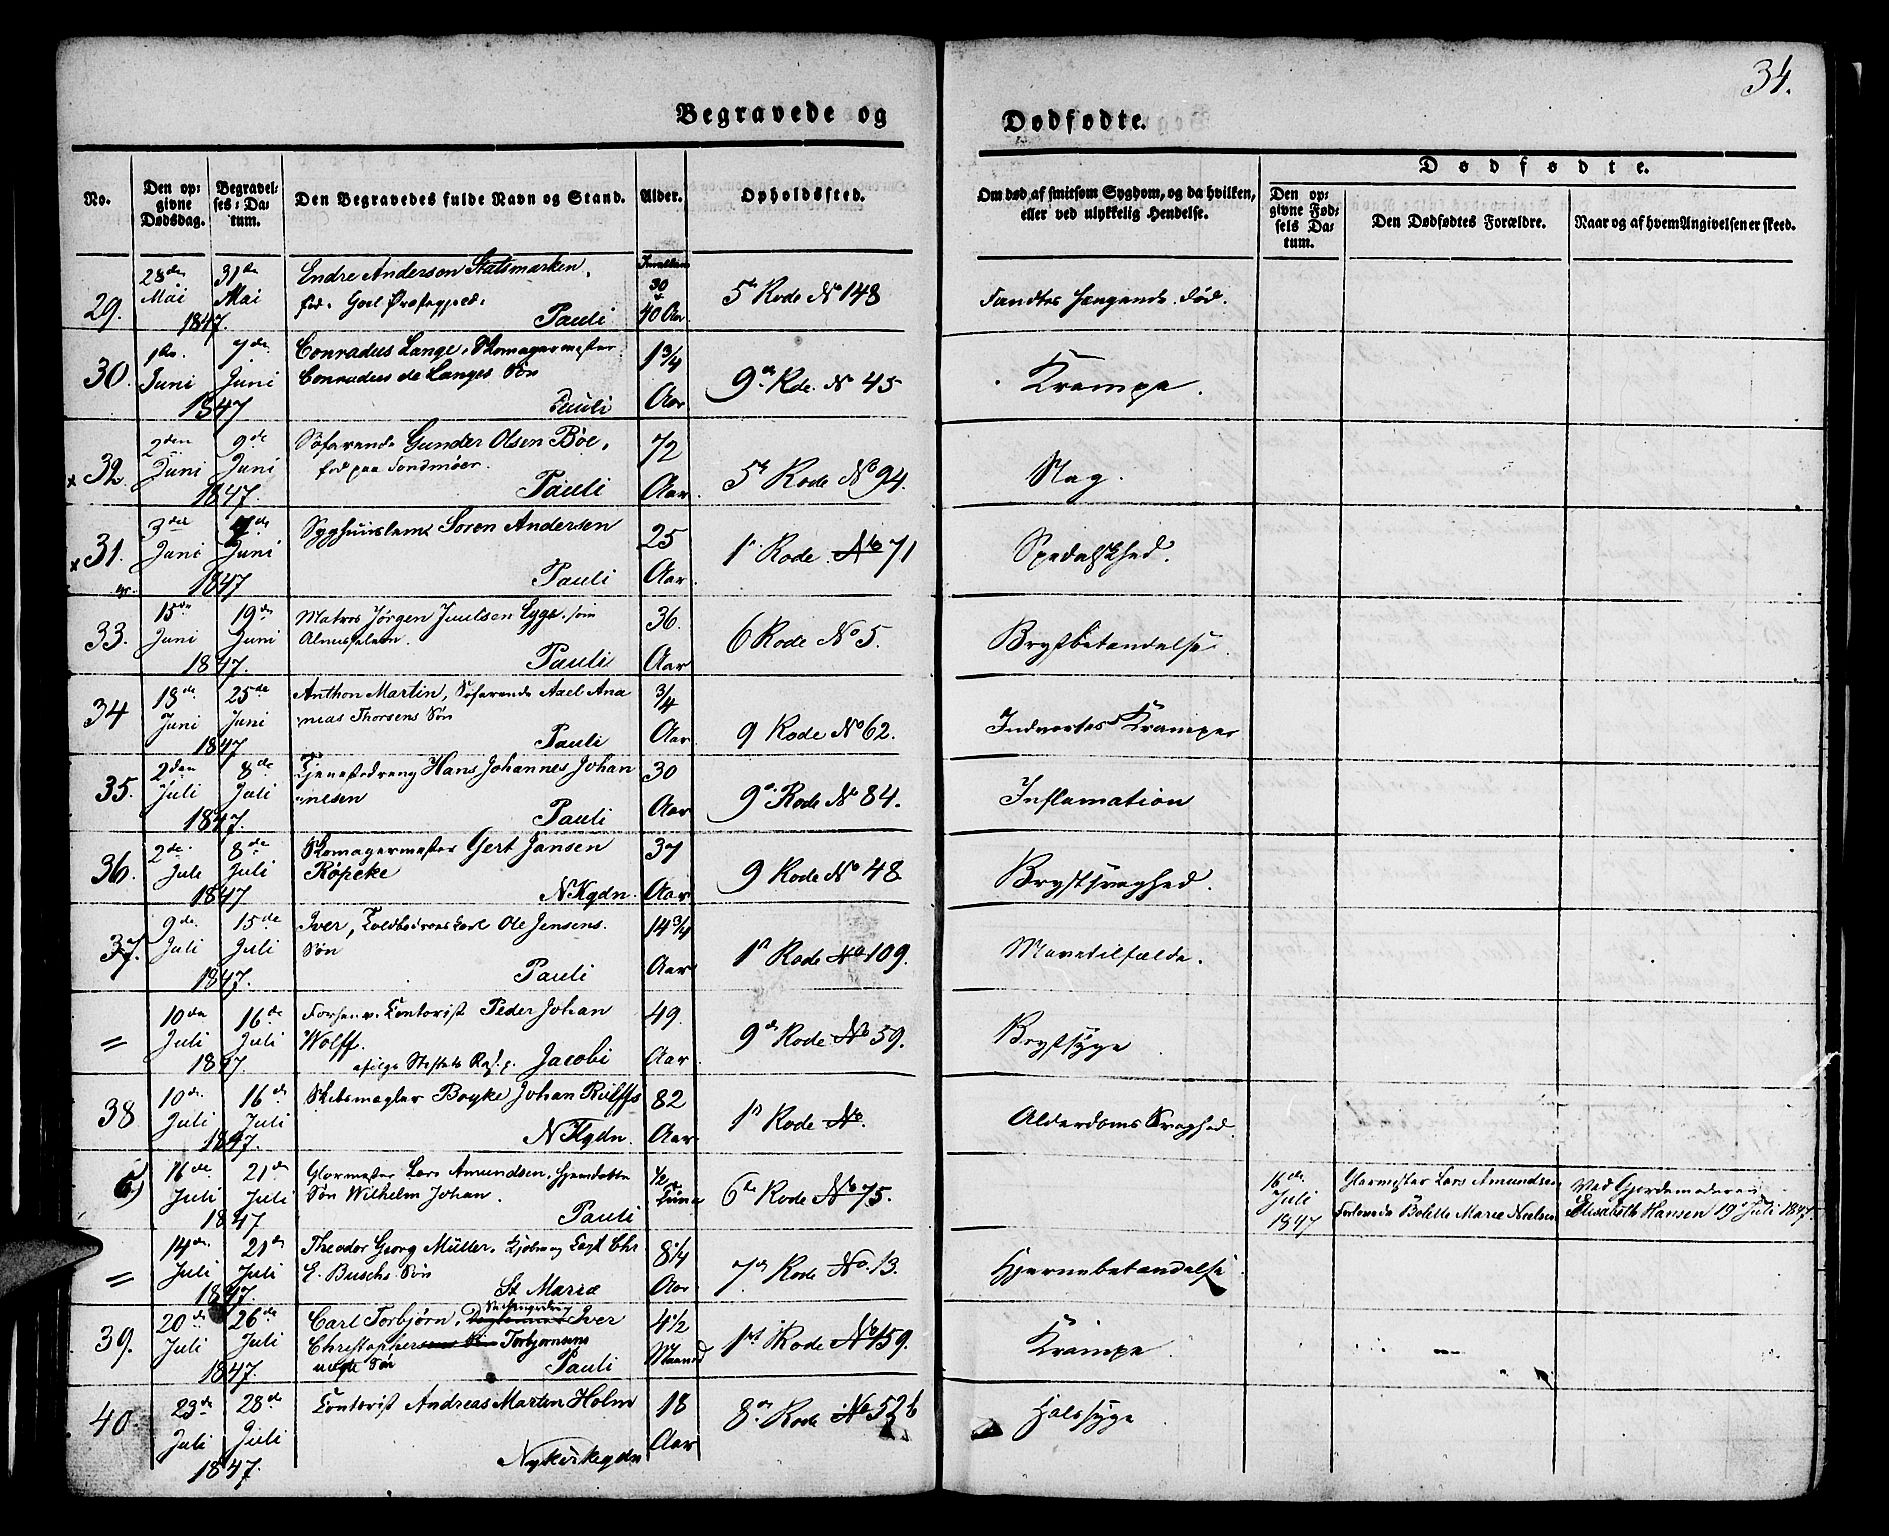 34.
Begravede og Dødfødte.
No.
Den opgivne Dødsdag.
Begravelses-Datum.
Den Begravedes fulde Navn og Stand.
Alder.
Opholdssted.
Om død af smitsom Sygdom, og da hvilken, eller ved ulykkelig Hendelse.
Dødfødte.
Den opgivne Fødsels Datum.
Den Dødfødtes Forældre.
Naar og af hvem Angivelsen er skeed.
29. 28de Mai 31te Mai 1847. Endre Anderson
Pauli 30 40 Aar 5te Rode No 148 Fandtes hængende død.
30. 1ste Juni 7de Juni 1847 Conradus Lange, Skomagermester
Conradus de Langes Søn
Pauli 1 3/4 Aar 9de Rde. No 45 Krampe.
x 32. 2den Juni 9de Juni 1847. Søfarende Gunder Olsen Böe,
fød paa Søndmøer.
Pauli 72 Aar. 5te Rode No 94. Slag.
x 31. 3die Juni 7de Juni 1847 Syghuuslem Soren Andersen
Pauli 25 Aar. 1ste Rode No 71 Spedalskhed.
33. 15de Juni 19de Juni 1847. Matros Jörgen Juulsen Lygre, som
Almuselem.
Pauli 36. Aar 6 Rode No 5. Brystbetændelse.
34 18de Juni 25de Juni 1847 Anthon Martin, Søfarende Axel Ana
nias Thorsens Søn
Pauli 3/4 Aar. 9 Rode No 62. Indvortes Kramper
35. 2den Juli 8de Juli 1847. Tjenestedreng Hans Johannes Johan
nesen
Pauli 30 Aar 9de Rode No 84. Inflamation
36. 2de Juli 8de Juli 1847 Skomagermester Gert Jansen
Röpcke
NKgdn. 37 Aar 9 Rode No 48 Brystsvaghed.
37. 9de Juli 15de Juli 1847. Iver, Toldbodroerskarl Ole Jensens
Søn
Pauli 14 3/4 Aar 1ste Rode No 109. Mavetilfælde.
= 10de Juli 16de Juli 1847. Contorist Peder Johan
Wolff.
Jacobi 49. Aar. 9de Rode No 59. Brystsyge
38 10de Juli 16de Juli 1847. Skibsmægler Boyke Johan Rulffs
NKgdn. 82 Aar. 1ste Rode No. Alderdoms Svaghed.
6) 16de Juli 21de Juli 1847 Glarmester Lars Amundsen, hjemdøbte
Søn Wilhelm Johan.
Pauli 1/2 Time 6te Rode No 75. 16de Juli 1847 Glarmester Lars Amundsen
Forlovede Bolette Marie Neelsen Ved Gjordemoderen
Elisabeth Hansen 19 Juli 1847.
= 14de Juli 21de Juli 1847. Theodor Georg Müller, Chr
E. Buschs Søn
St Mariæ 8 1/4 Aar 7de Rode No. 13. Hjernebetændelse
39. 20de Juli 26de Juli 1847. Carl Torbjörn, Iver
Christophersens Torbjornsens
uægte Søn Pauli 4 1/2 Maaned 1ste Rode No 159. Krampe.
40. 23de Juli 28de Juli 1847. Contorist Andreas Marten Holm
Nykirkegdn 18 Aar 8de Rode No 52b Halssyge